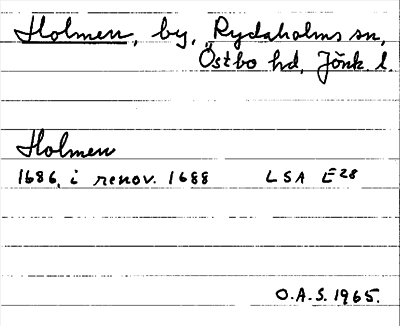 Holmen, by, Rydaholms sn,
Östbo hd, Jönk. l.
Holmen
1686, i renov. 1688 LSA E28
O.A.S. 1965.